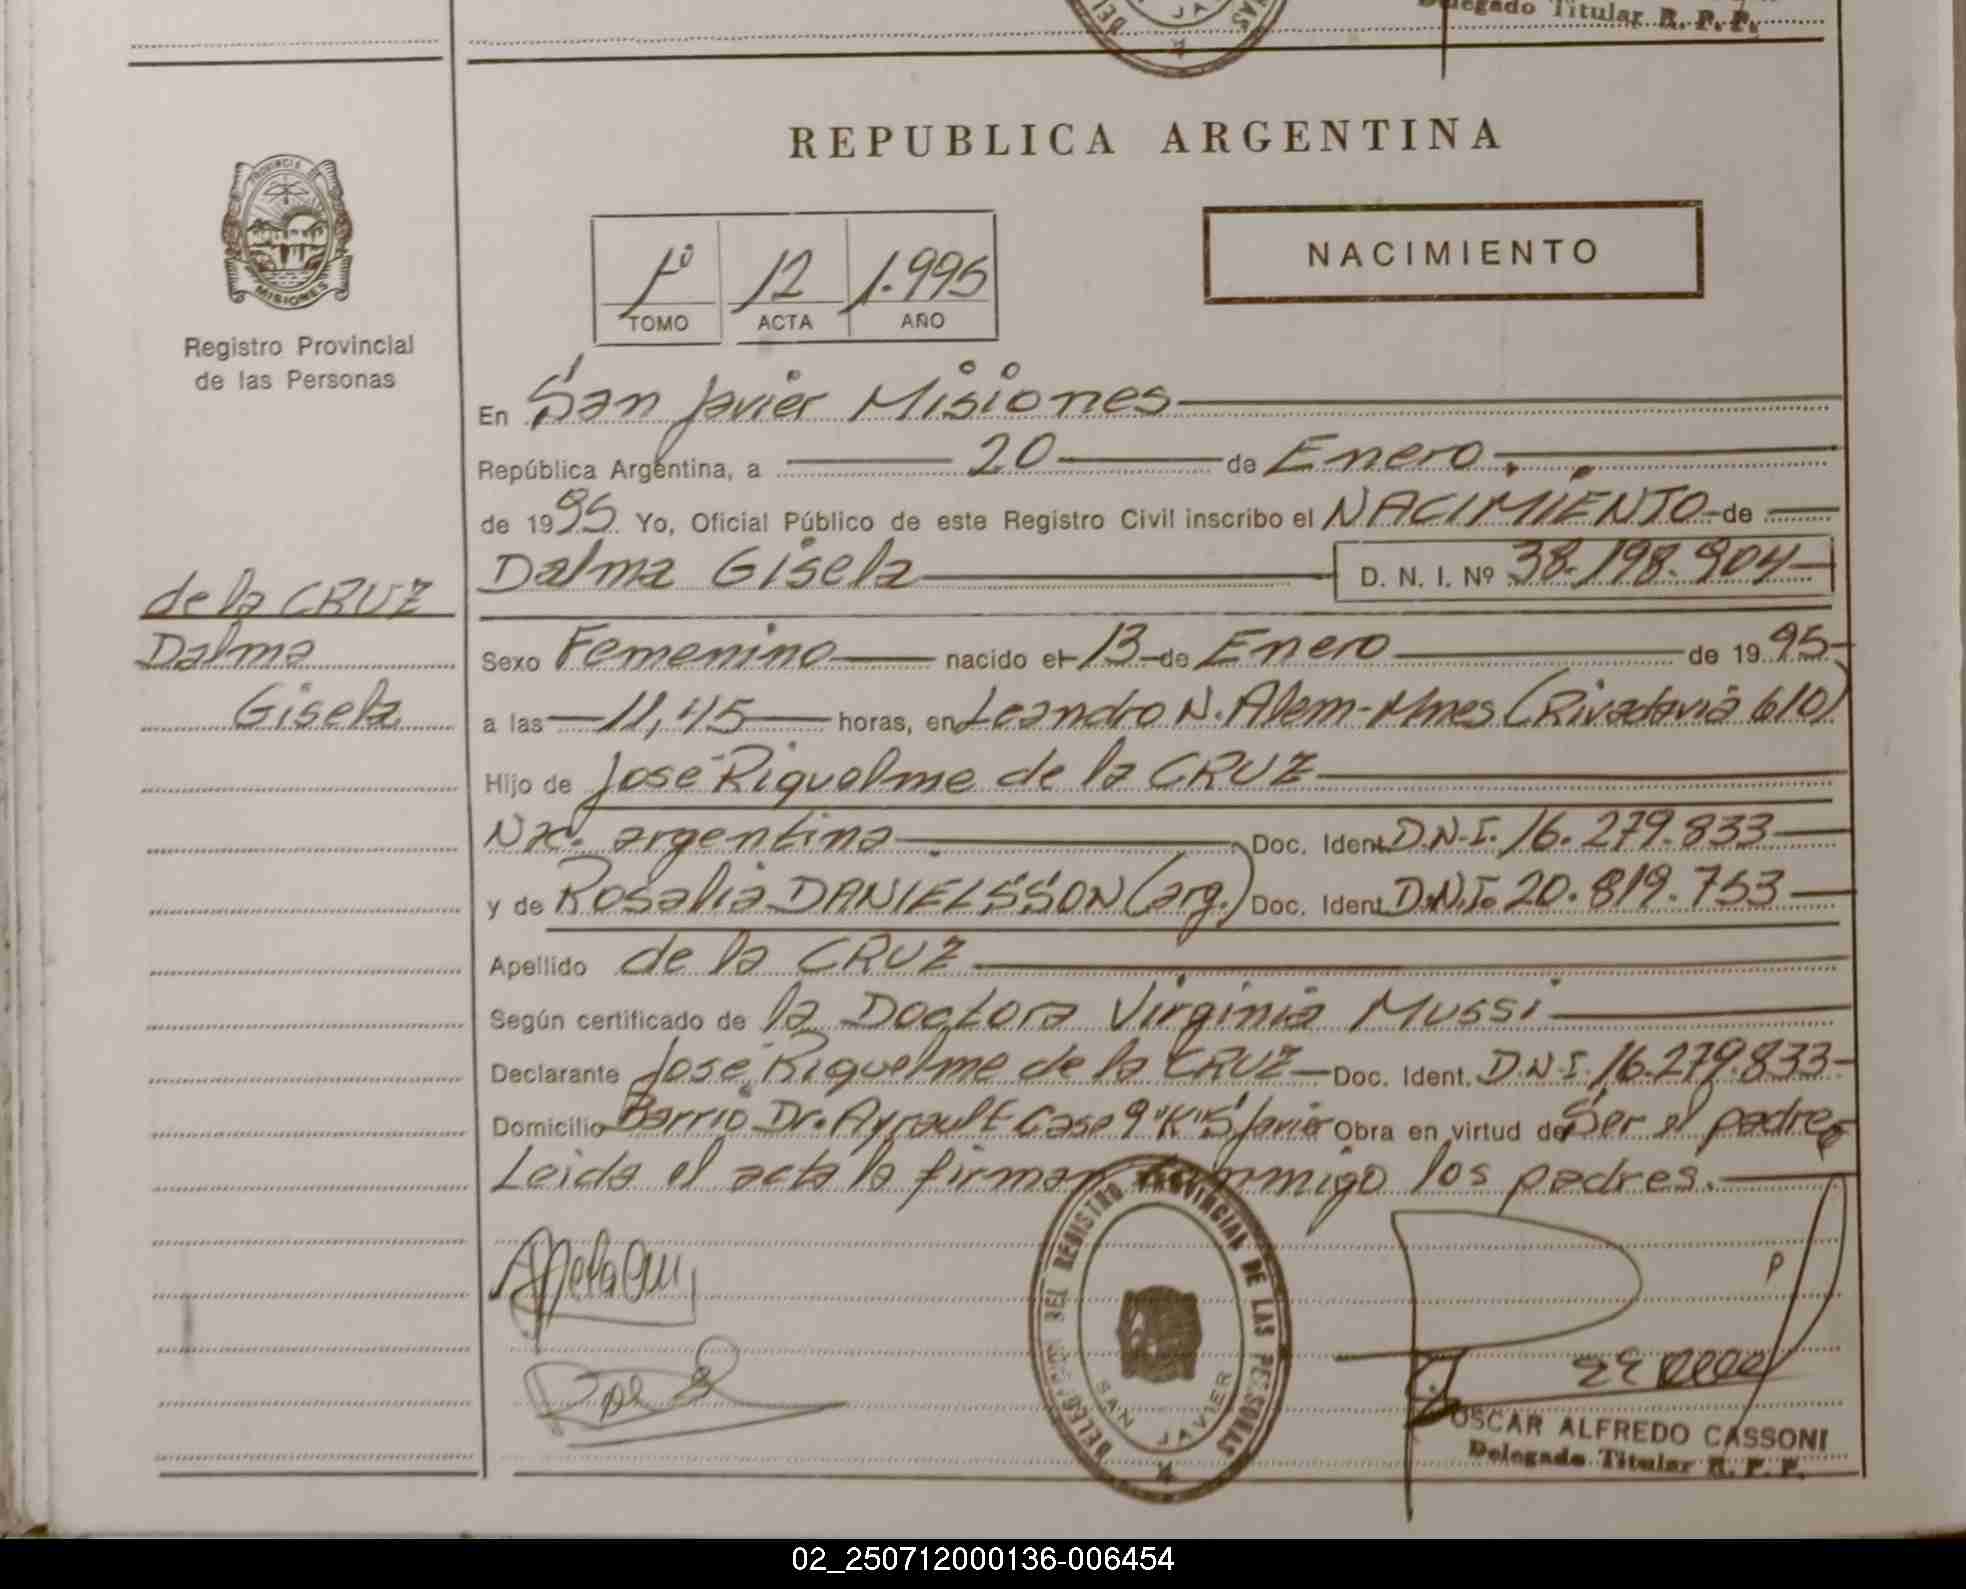 Delegado Titular R. P. P.
JA
REPUBLICA ARGENTINA
PROVINCIA DE
MISIONES
Registro Provincial
de las Personas
1º 12 1.995
TOMO ACTA AÑO
NACIMIENTO
En San Javier Misiones
República Argentina, a 20 de Enero.
de 1995 Yo, Oficial Público de este Registro Civil inscribo el NACIMIENTO de
Dalma Gisela D. N. I. Nº 38.198.904
de la CRUZ
Dalma
Gisela
Sexo Femenino nacido el 13 de Enero de 1995
a las 11,45 horas, en Leandro N. Alem-Mnes (Rivadavia 610)
Hijo de José Riquelme de la CRUZ
Nac. argentina Doc. Ident. D.N.I. 16.279.833
y de Rosalia DANIELSSON (arg.) Doc. Ident. D.N.I. 20.819.753
Apellido de la CRUZ
Según certificado de la Doctora Virginia Mussi
Declarante José Riquelme de la CRUZ Doc. Ident. D.N.I. 16.279.833
Domicilio Barrio Dr. Ayrault Casa 9 "K" S. Javier Obra en virtud de Ser el padre
Leida el acta la firman conmigo los padres.
DELEGACION DEL REGISTRO PROVINCIAL DE LAS PERSONAS
SAN JAVIER
OSCAR ALFREDO CASSONI
Delegado Titular R. P. P.
02_250712000136-006454